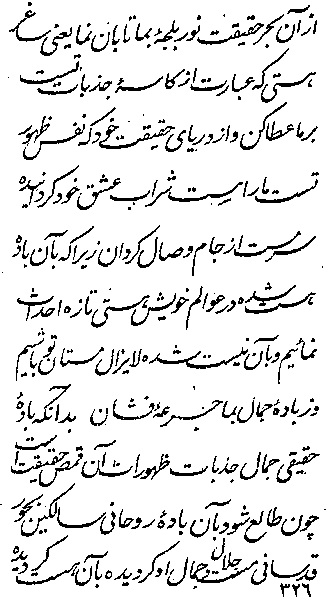 از آن بحر حقیقت نور بلجهٔ بما تابان نما یعنی ساغر
هستی که عبارت از کاسهٔ جذبات تست
بر ما عطا کن و از دریای حقیقت خود که نفس ظهور
تست ما را مست شراب عشق خود گردانیده
سرمست از جام وصال گردان زیرا که بآن باده
هست شده در عوالم خویش هستی تازه احداث
نمائیم و بآن نیست شده لایزال مستان تو باشیم
وز بادهٔ جمال بما جرعهٔ فشان بدانکه بادهٔ
حقیقی جمال جذبات ظهورات آن قمص حقیقت است
چون طالع شود بآن بادهٔ روحانی سالکین بحور
قدسانی مست جلال و جمال او گردیده بآن هست گردیده
۳۲۶